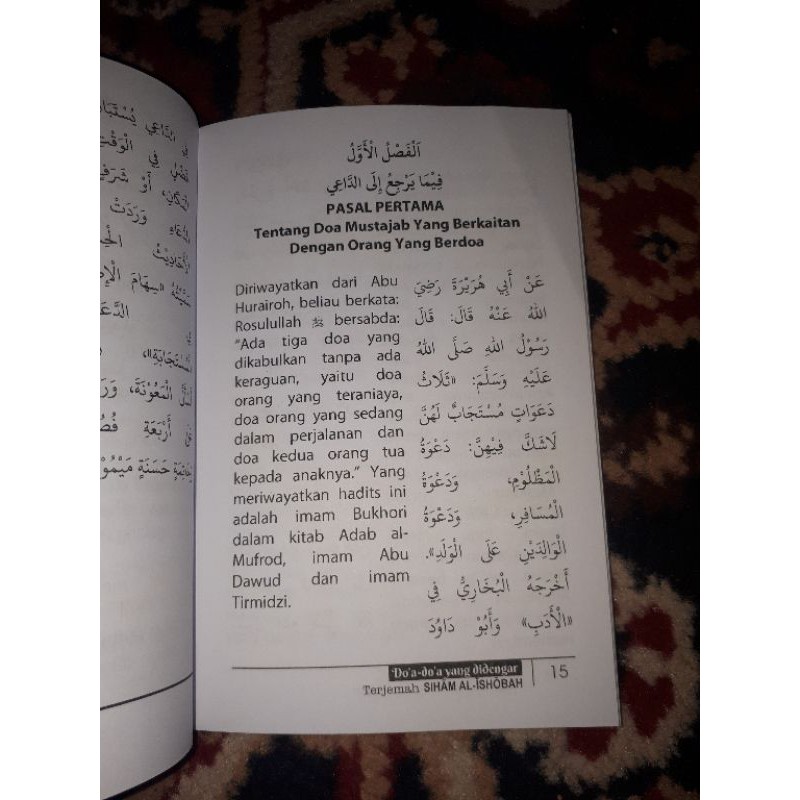 في الدَّاعِي
فِي الْوَقْتِ
أَوْ
وَرَدَتْ
«سِهَامَ
الْمَعُونَةَ،
أَرْبَعَةِ
حَسَنَةٍ
اَلْفَصْلُ الْأَوَّلُ
فِيْمَا يَرْجِعُ إِلَى الدَّاعِي
PASAL PERTAMA
Tentang Doa Mustajab Yang Berkaitan
Dengan Orang Yang Berdoa
Diriwayatkan dari Abu
Hurairoh, beliau berkata:
Rosulullah ﷺ bersabda:
"Ada tiga doa yang
dikabulkan tanpa ada
keraguan, yaitu doa
orang yang teraniaya,
doa orang yang sedang
dalam perjalanan dan
doa kedua orang tua
kepada anaknya." Yang
meriwayatkan hadits ini
adalah imam Bukhori
dalam kitab Adab al-
Mufrod, imam Abu
Dawud dan imam
Tirmidzi.
عَنْ أَبِي هُرَيْرَةَ رَضِيَ
اللهُ عَنْهُ قَالَ: قَالَ
رَسُوْلُ اللهِ صَلَّى اللهُ
عَلَيْهِ وَسَلَّمَ: «ثَلَاثُ
دَعَوَاتٍ مُسْتَجَابٌ لَهُنَّ
لَاشَكَّ فِيْهِنَّ: دَعْوَةُ
الْمَظْلُوْمِ، وَدَعْوَةُ
الْمُسَافِرِ، وَدَعْوَةُ
الْوَالِدَيْنِ عَلَى الْوَلَدِ».
أَخْرَجَهُ الْبُخَارِيُّ فِي
«الْأَدَبِ» وَأَبُوْ دَاوُدَ
Do'a-do'a yang didengar
Terjemah SIHÂM AL-ÎSHÔBAH
15